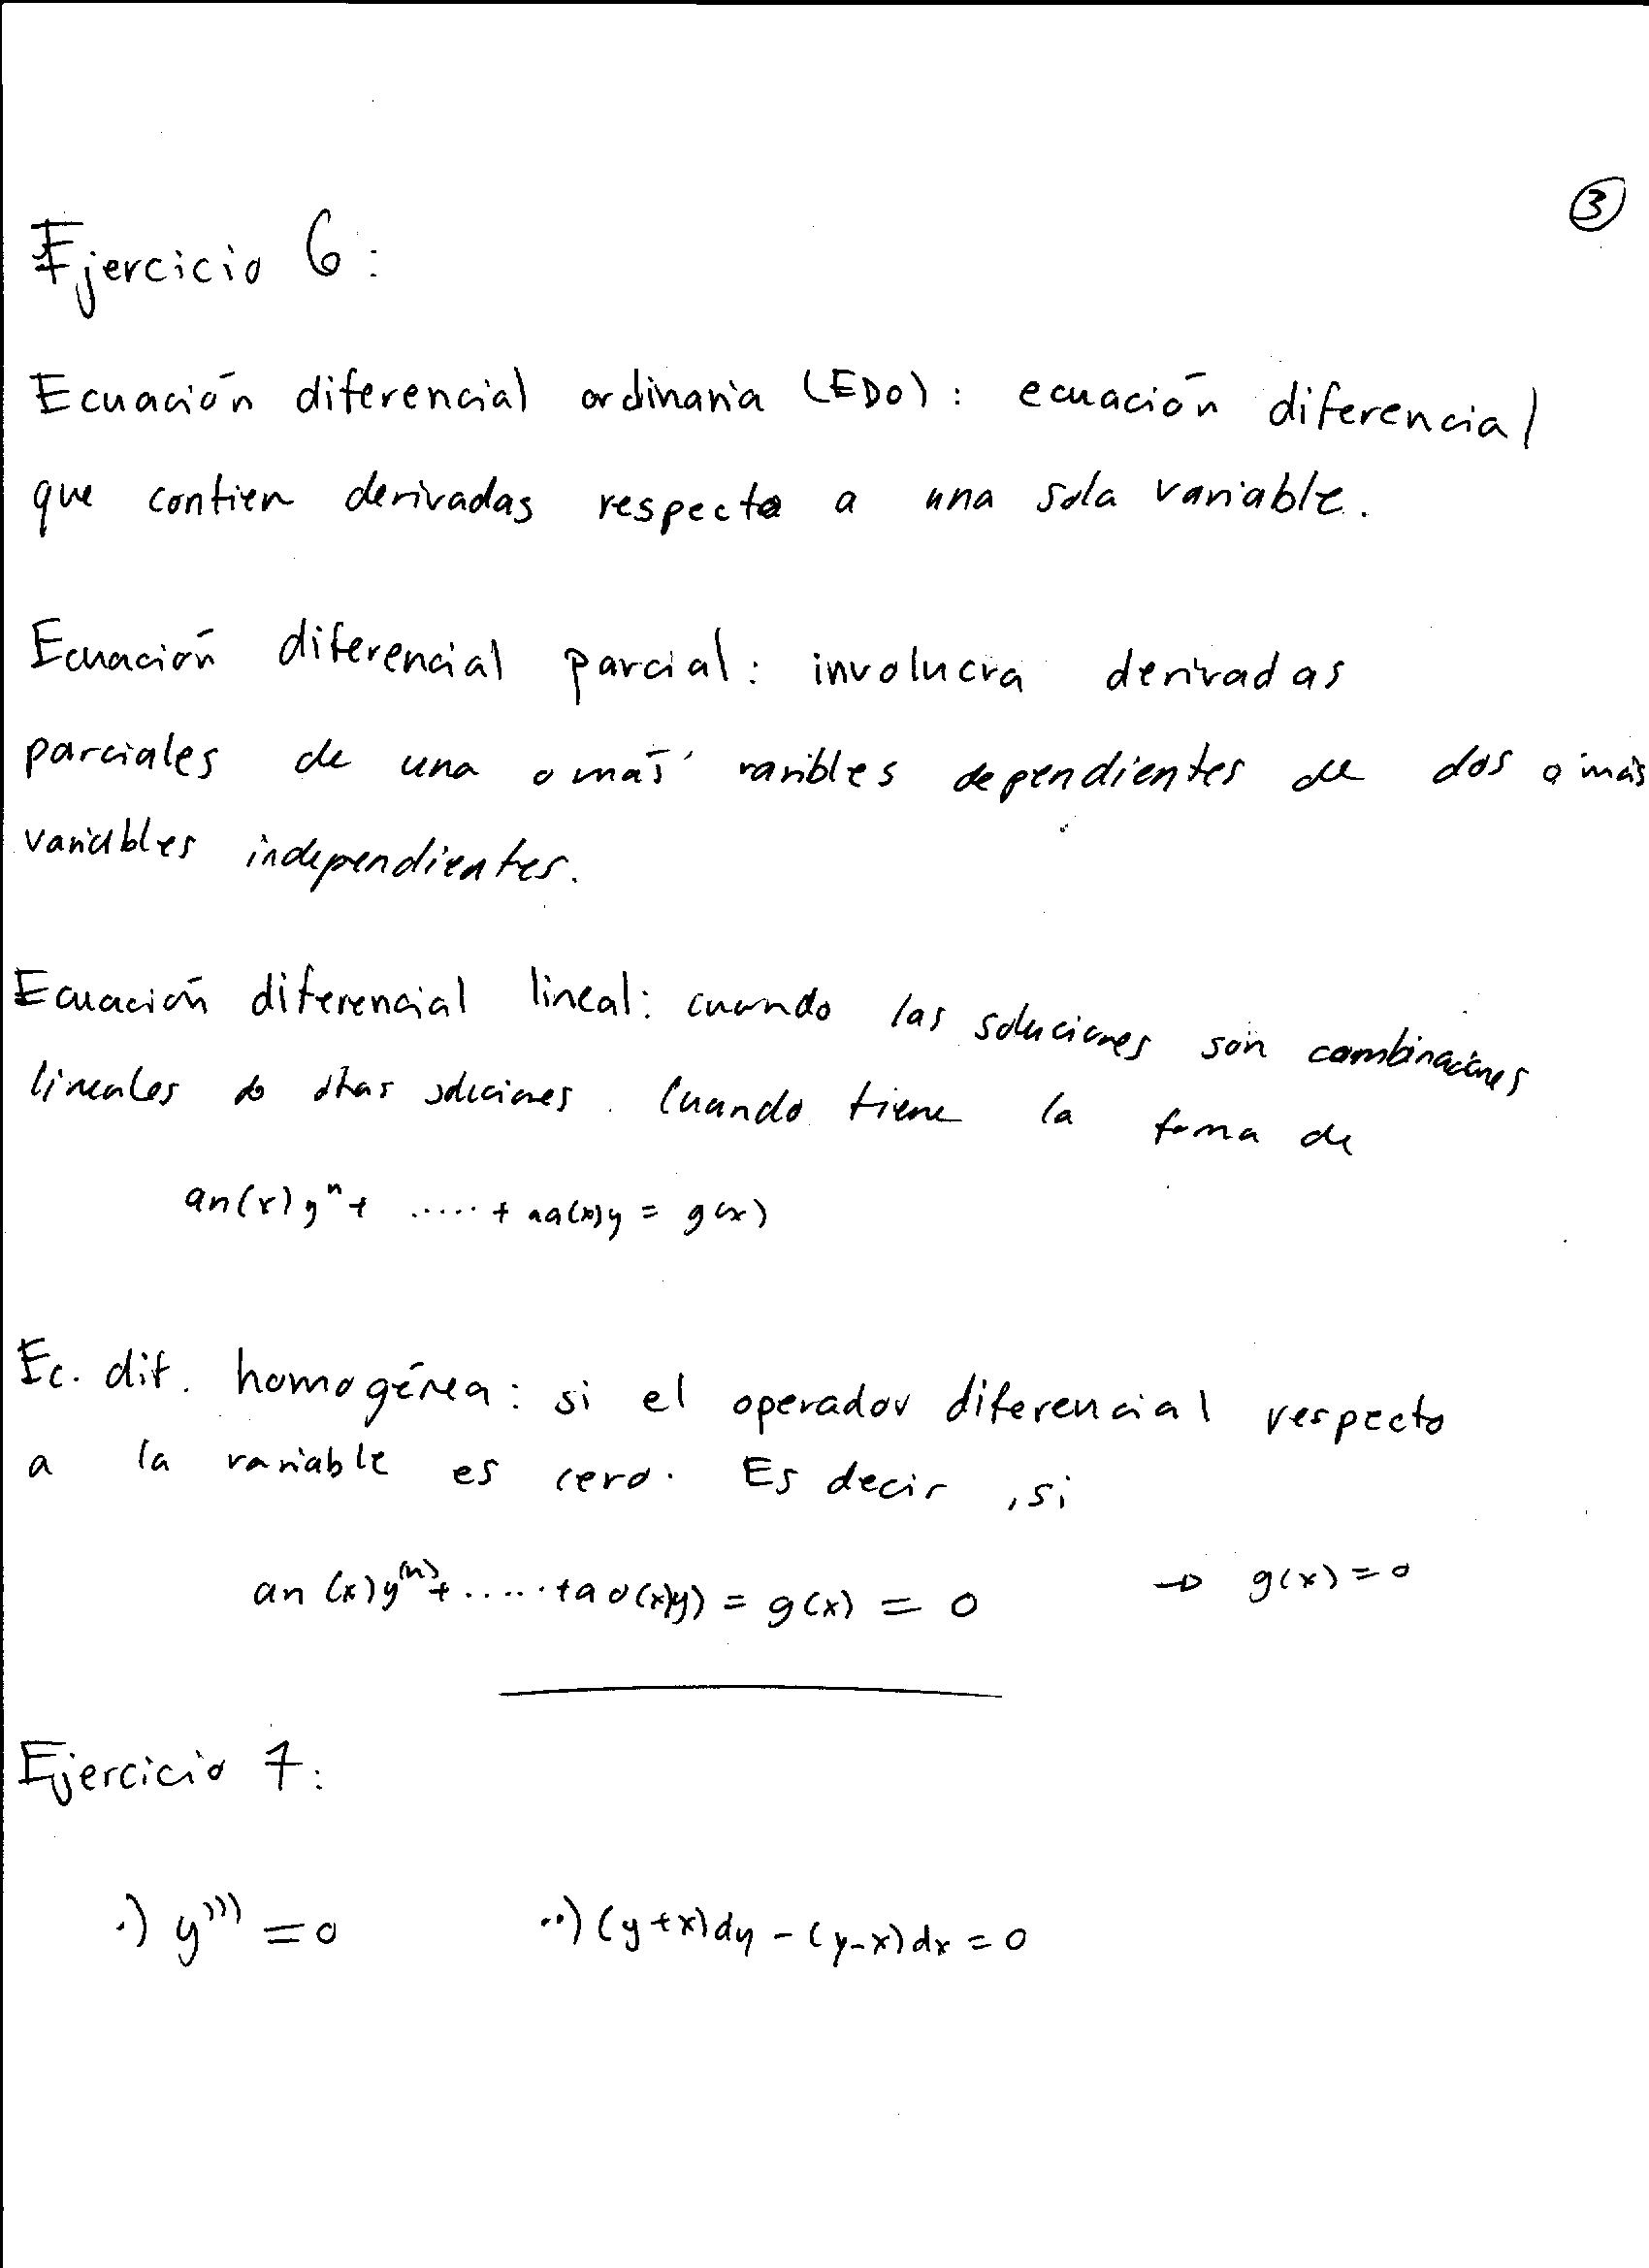 3
Ejercicio 6:
Ecuación diferencial ordinaria (EDO): ecuación diferencial
que contien derivadas respecto a una sola variable.
Ecuación diferencial parcial: involucra derivadas
parciales de una o más varibles dependientes de dos o más
variables independientes.
Ecuación diferencial lineal: cuando las soluciones son combinaciones
lineales de otras soluciones. Cuando tiene la forma de
an(x)yⁿ + ..... + aa(x)y = g(x)
Ec. dif. homogénea: si el operador diferencial respecto
a la variable es cero. Es decir, si
an(x)y⁽ⁿ⁾ + ..... + a0(x)y) = g(x) = 0 → g(x) = 0
Ejercicio 7:
.) y''' = 0 ..) (y+x)dy - (y-x)dx = 0